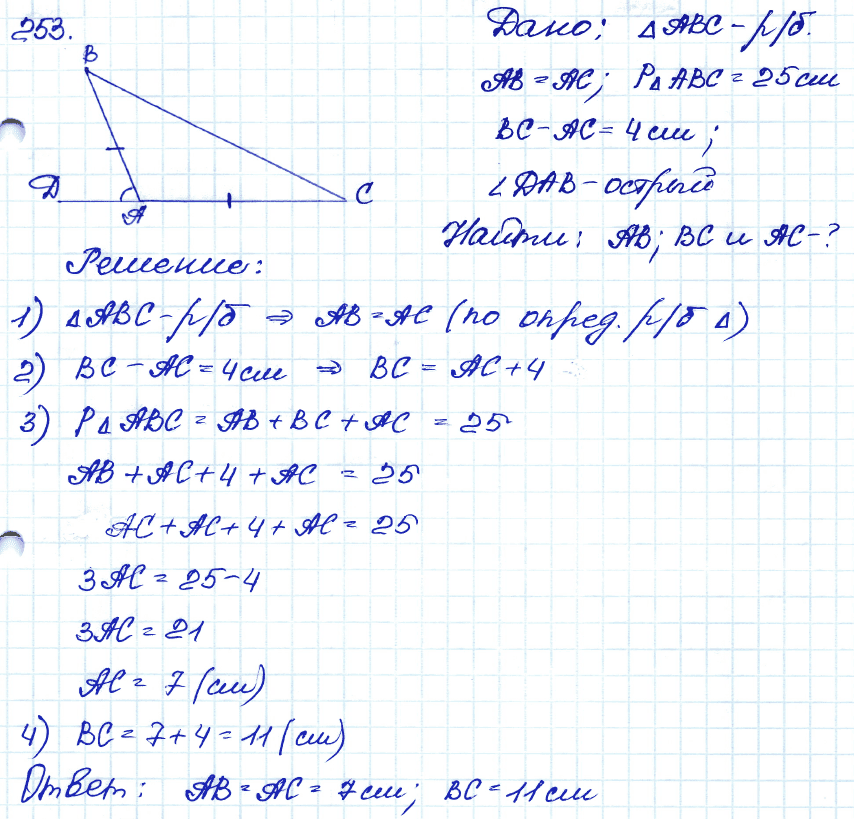 253.
Дано: △ABC - р/б.
AB = AC; P△ABC = 25см
BC - AC = 4см;
∠DAB - острый
Найти: AB; BC и AC - ?
B
D
A
C
Решение:
1) △ABC - р/б ⇒ AB = AC (по опред. р/б △)
2) BC - AC = 4см ⇒ BC = AC + 4
3) P△ABC = AB + BC + AC = 25
AB + AC + 4 + AC = 25
AC + AC + 4 + AC = 25
3AC = 25 - 4
3AC = 21
AC = 7 (см)
4) BC = 7 + 4 = 11 (см)
Ответ: AB = AC = 7см; BC = 11см